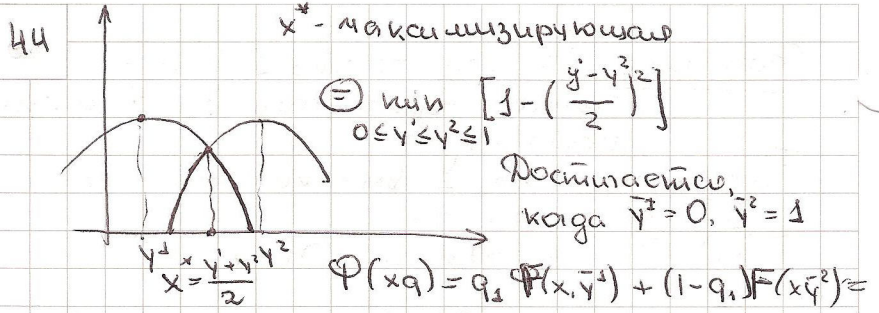 44
x* - максимизирующая
⊜ min [1 - ((y¹ - y²)/2)²]
0 ≤ y¹ ≤ y² ≤ 1
Достигается,
когда ȳ¹ = 0, ȳ² = 1
y¹ x* = (y¹ + y²)/2 y²
Φ(xq) = q₁ F(x, ȳ¹) + (1 - q₁)F(xȳ²) =